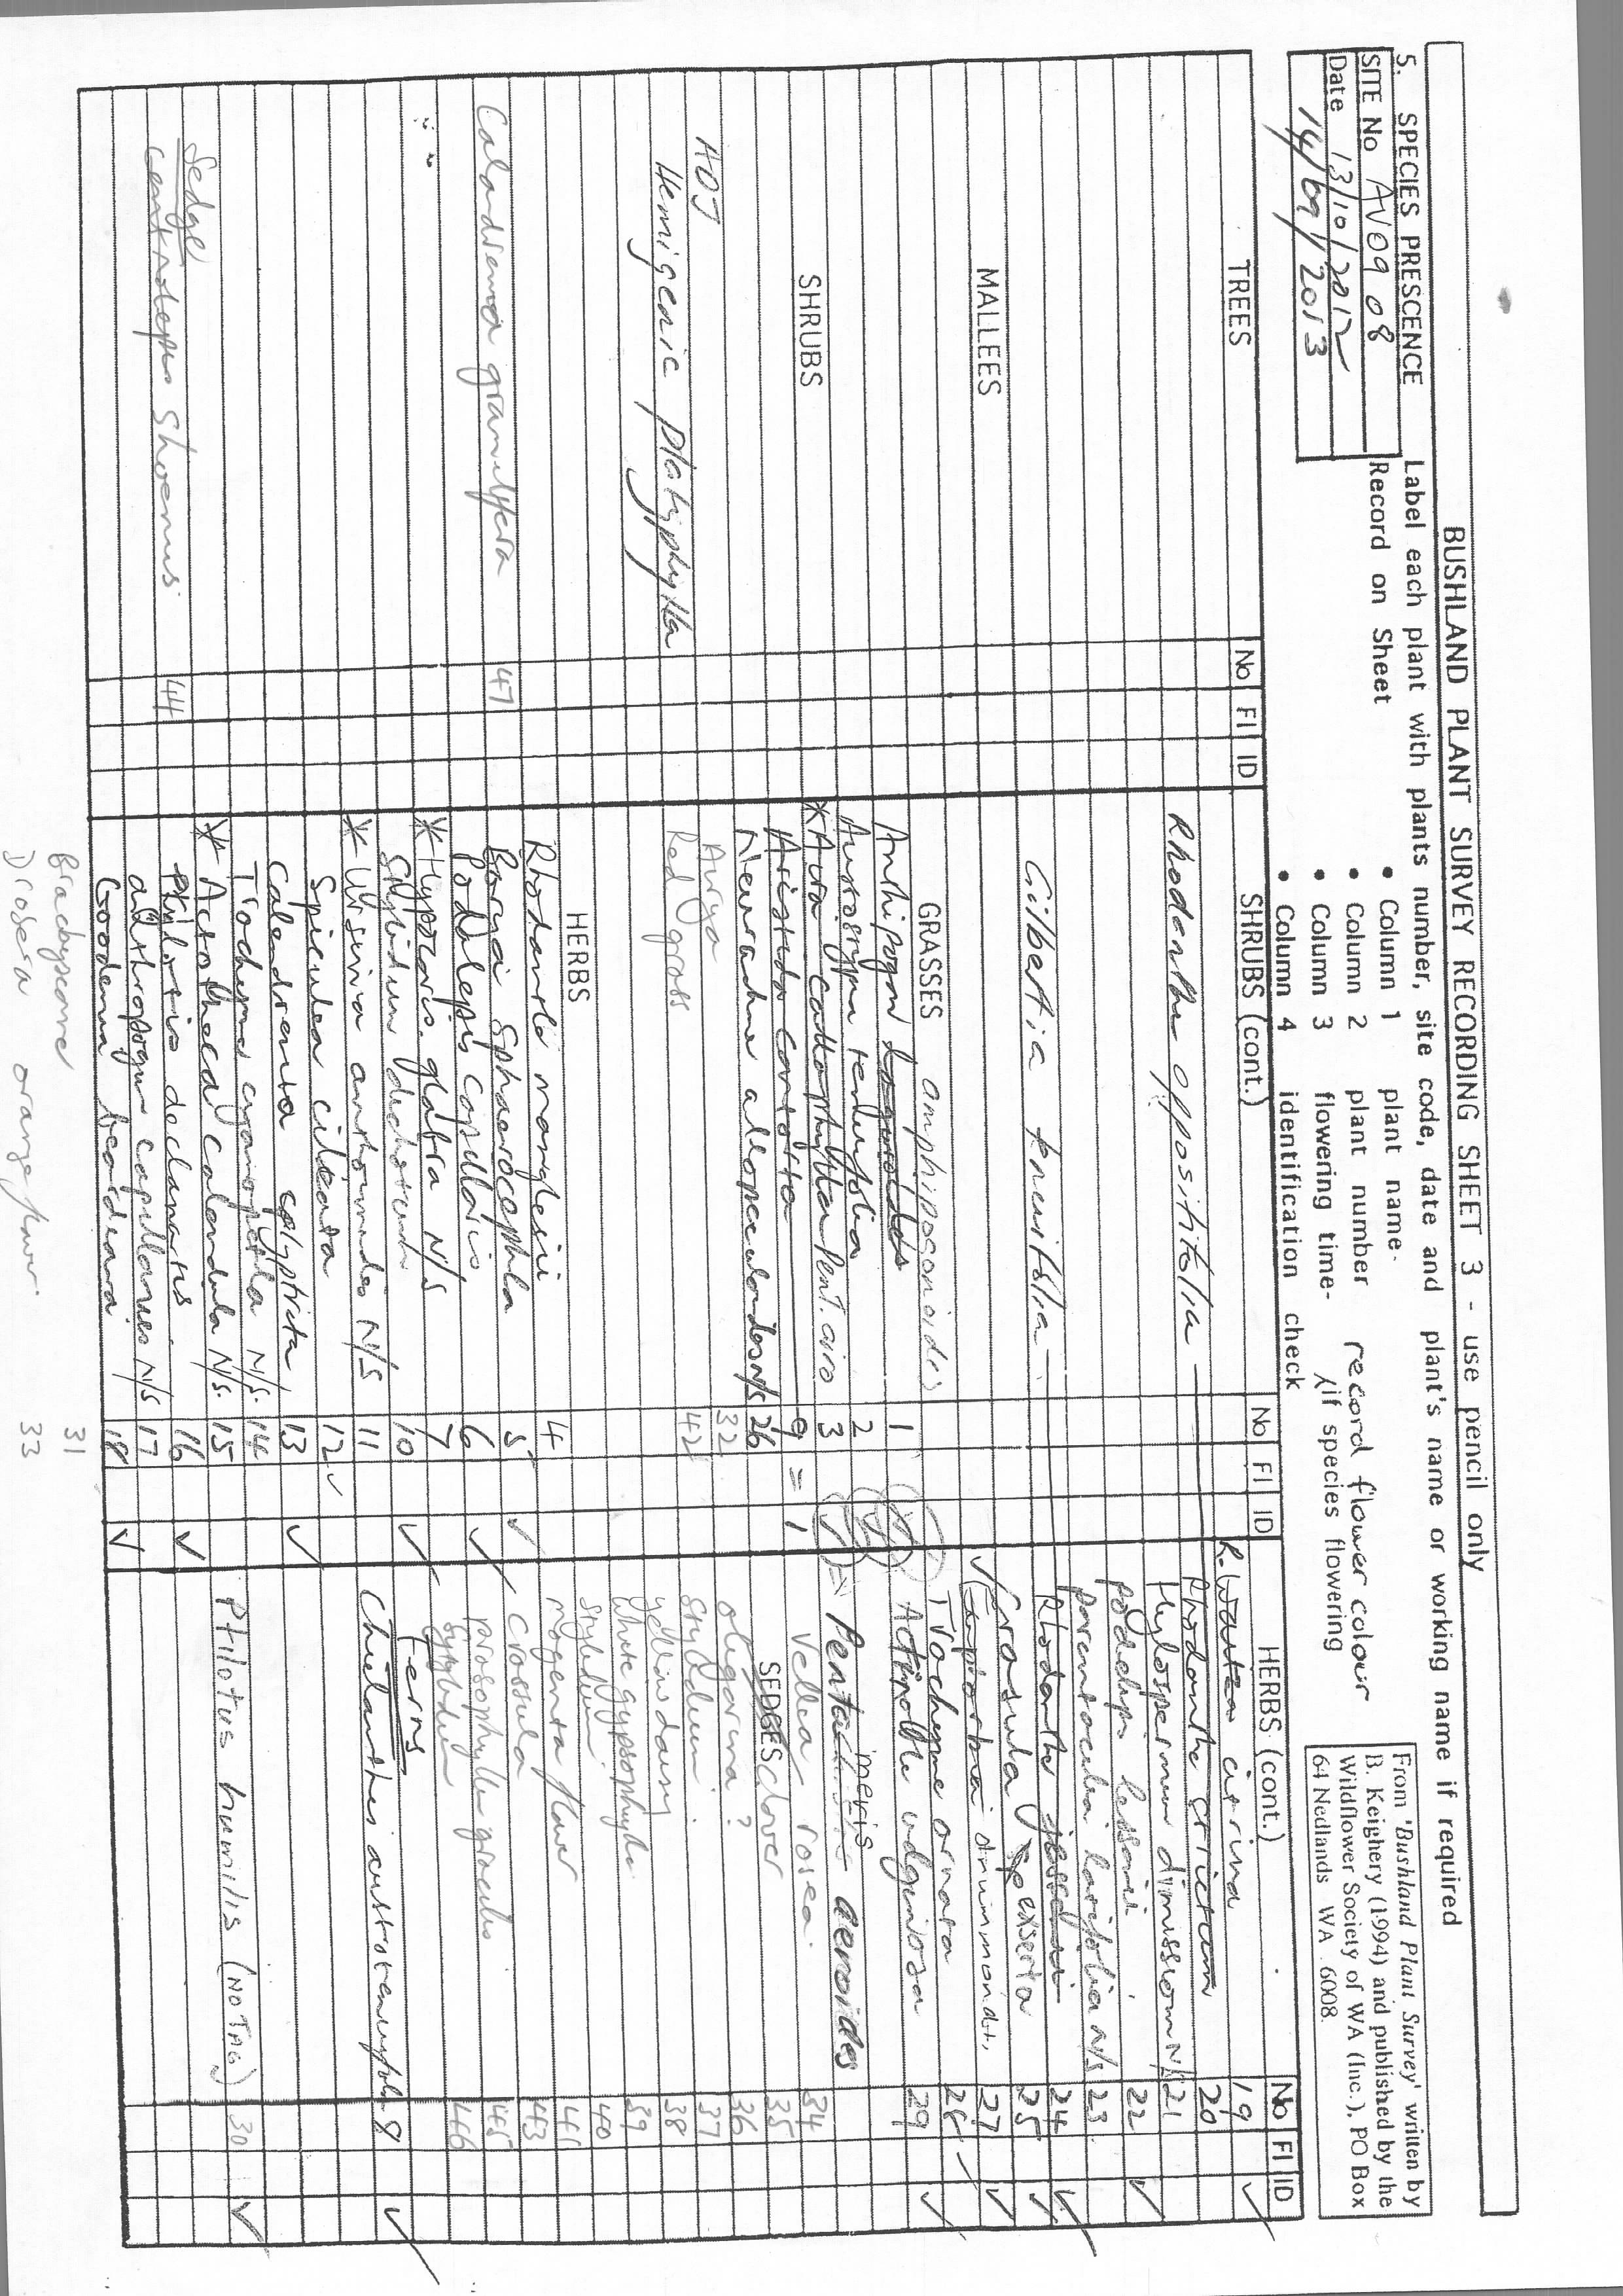 BUSHLAND PLANT SURVEY RECORDING SHEET 3 - use pencil only
5. SPECIES PRESCENCE Label each plant with plants number, site code, date and plant's name or working name if required
SITE No AV09 08
Record on Sheet
Date 13/10/2012
14/09/2013
• Column 1 plant name.
• Column 2 plant number record flower colour
• Column 3 flowering time- if species flowering
• Column 4 identification check
From 'Bushland Plant Survey' written by
B. Keighery (1994) and published by the
Wildflower Society of WA (Inc.), PO Box
64 Nedlands WA 6008.
TREES No Fl ID
MALLEES
SHRUBS
ADJ
Hemigenic platyphylla
Calandrenia granulifera 47
Sedge
centrolepis Shoenus 44
SHRUBS (cont.) No Fl ID
Rhodanthe oppositifolia
Gilbertia tenuifolia
GRASSES amphipogonoides
Amphipogon 1
Austrostipa tenuifolia 2
* Aira caryophyllea Pent. airo 3
Aristida contorta 9 = 1
Neurachne allopecuroides N/S 26
32
Red grass 42
HERBS
Rhodanthe manglesii 4
Borya Sphaerocephla 5 ✓
Podolepis capillaris 6 ✓
* Hypocaris glabra N/S 7
Stylidium dichotomum 10 ✓
* Ursinia anthemoides N/S 11
Spiculea ciliata 12 ✓
Calandrenia calyptrata 13 ✓
Trachymene cyanopetala N/S. 14
* Actotheca calendula N/S. 15
Ptilotis declinatus 16 ✓
capillaries N/S 17
Goodenia berdiana 18 ✓
Bracbyscome 31
Drosera orange flower. 33
HERBS (cont.) No Fl ID
R. citrina 19 ✓
Rhodanthe strictum 20
Hylospermum dimissiom N/S 21
Podolepis lessonii 22 ✓
parentucelia latifolia N/S 23
Rhodanthe 24 ✓
Crassula exserta 25 ✓
✓ Euphorbia drummondii 27 ✓
Trachymene ornata 28 ✓
Actinoble uliginosa 29 ✓
meris
Pentach aeroides
Vellia rosea. 34
SEDGES Clover 35
oligarina ? 36
stylidium 37
yellow daisy 38
white gypsophyla 39
stylidium 40
magenta flower 41
crassula 43
prasophyllum gracile 45
stylidium 46
Ferns
Chielanthes austrotenuifolia 8 ✓
Ptilotus humilis (NO TAG) 30 ✓